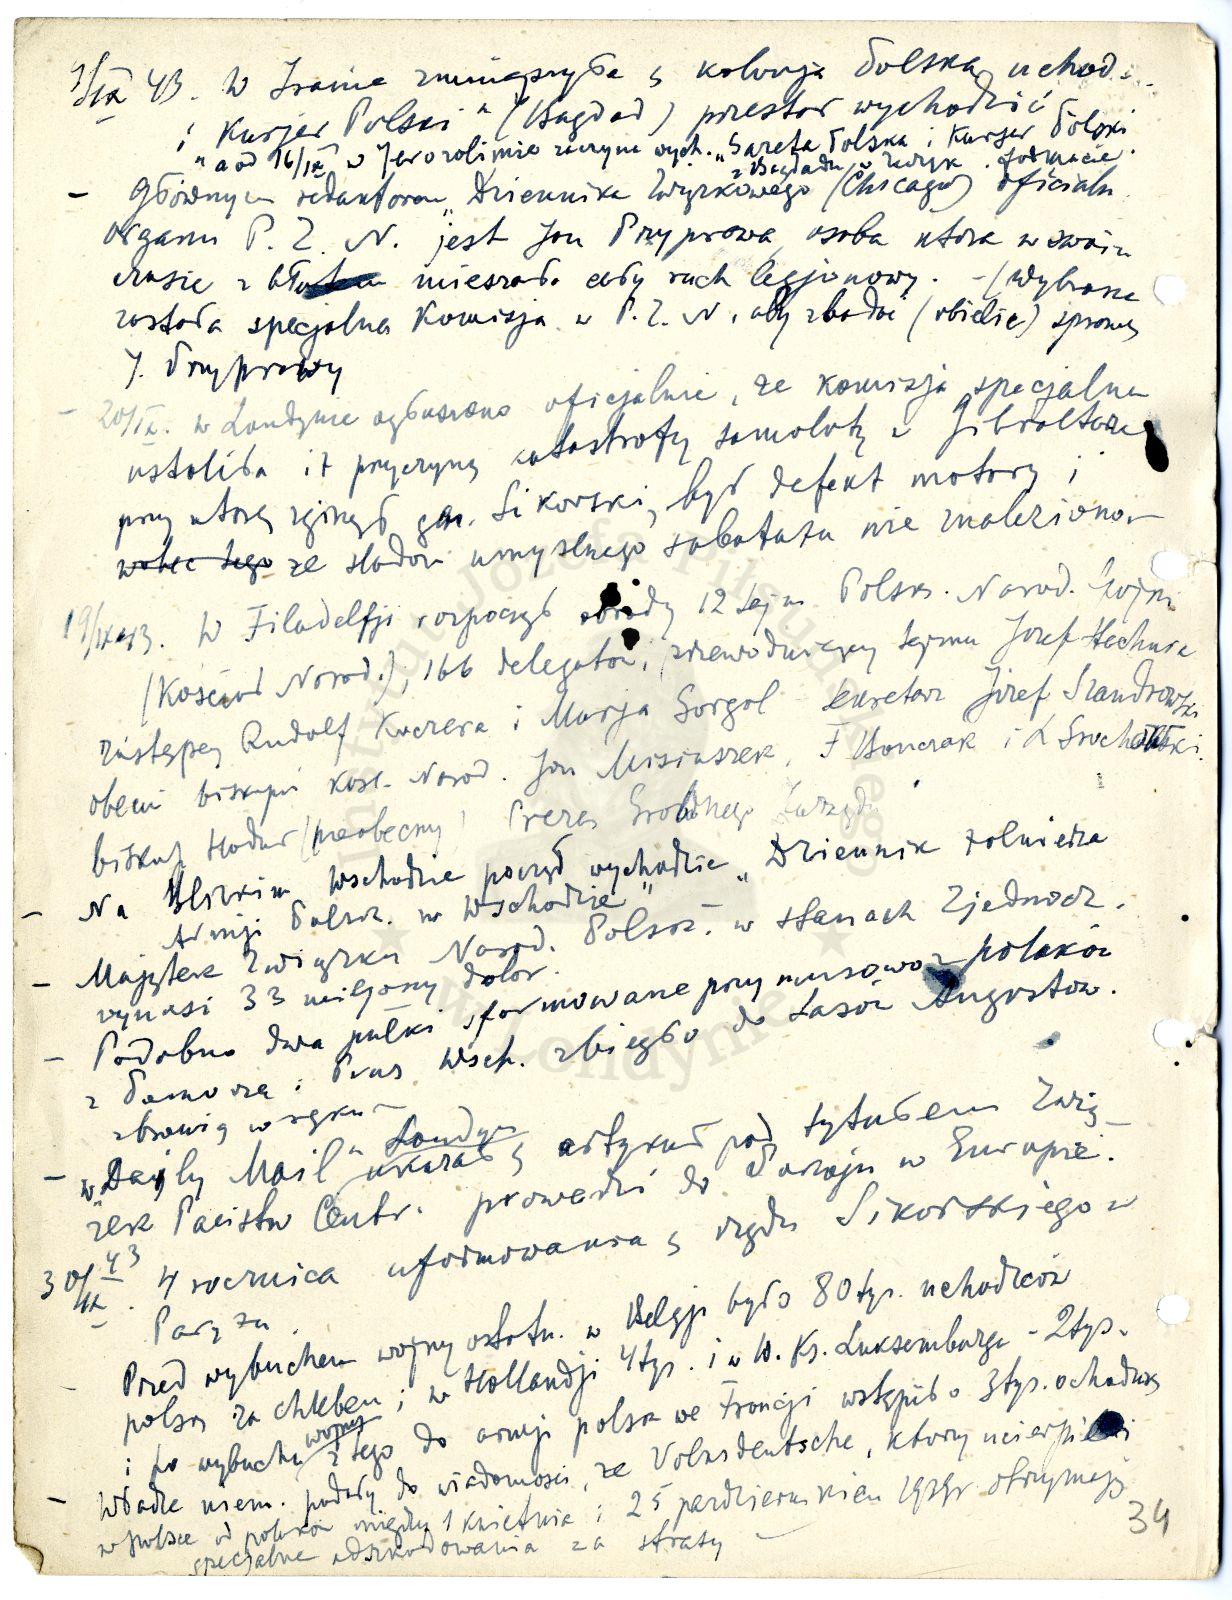 1/IX 43. W Iranie zmniejszyła się kolonja Polska uchod...
i „Kurjer Polski" (Bagdad) przestał wychodzić
a od 16/IX w Jerozolimie zaczyna wych. „Gazeta Polska i Kurjer Polski
z Bagdadu w zwięk. formacie.
– Głównym redaktorem „Dziennika Związkowego (Chicago) oficialn.
organu P. Z. N. jest Jan Przyprawa, osoba która w swoim
czasie z błotem mieszała cały ruch legjonowy. – (Wybrana
została specjalna Komisja w P. Z. N. aby zbadać (obielić) sprawę
J. Przyprawy
– 20/IX. w Londynie ogłoszono oficjalnie, że komisja specjalna
ustaliła iż przyczyną katastrofy samolotu w Gibraltarze
przy której zginął gen. Sikorski, był defekt motoru i
wobec tego że śladów umyślnego sabotażu nie znaleziono –
19/IX 43. W Filadelfji rozpoczął obrady 12 Sejm Polsk. Narod. Spójni
(Kościoł Narod.), 166 delegatów, przewodniczący sejmu Jozef Hechnia
zastępcy Rudolf Kuczera i Marja Gorgol – sekretarz Józef Szandrowski
obecni biskupi Kosc. Narod. Jan Misiaszek, F Bonczak i L Grochowski.
biskup Hodur (nieobecny) Prezes Głównego Zarządu
– Na Bliskim Wschodzie począł wychodzić „Dziennik żołnierza
Armji Polsk. na Wschodzie"
– Majątek Związku Narod. Polsk. w Stanach Zjednocz.
wynosi 33 miljony dolor.
– Podobno dwa pułki sformowane przymusowo z polaków
z Pomorza i Prus Wsch. zbiegło do Lasów Augustow.
z bronią w ręku –
– w „Daily Mail" Londyn ukazał się artykuł pod tytułem Zwią–
zek Państw Centr. prowadzi do Pokoju w Europie.
30/IX 43. 4 rocznica uformowania się rządu Sikorskiego w
Paryżu.
– Przed wybuchem wojny ostatn. w Belgji było 80 tys. uchodźców
polsk za chlebem i w Hollandji 4 tys. i w W. Ks. Luksemburga – 2 tys.
i po wybuchu wojny z tego do armji polsk we Francji wstąpiło 3 tys. ochotnik
– Władze niem. podały do wiadomości, że Volksdeutsche, którzy ucierpieli
w polsce od polaków między 1 kwietnia i 25 pazdziernikiem 1939r. otrzymają
specjalne odszkodowania za straty –
34
Instytut Józefa Piłsudskiego
w Londynie